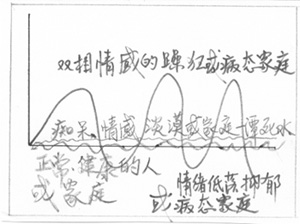 双相情感的躁狂或病态家庭
痴呆、情感淡漠或家庭一潭死水
正常、健康的人
或家庭
情绪低落抑郁
或病态家庭